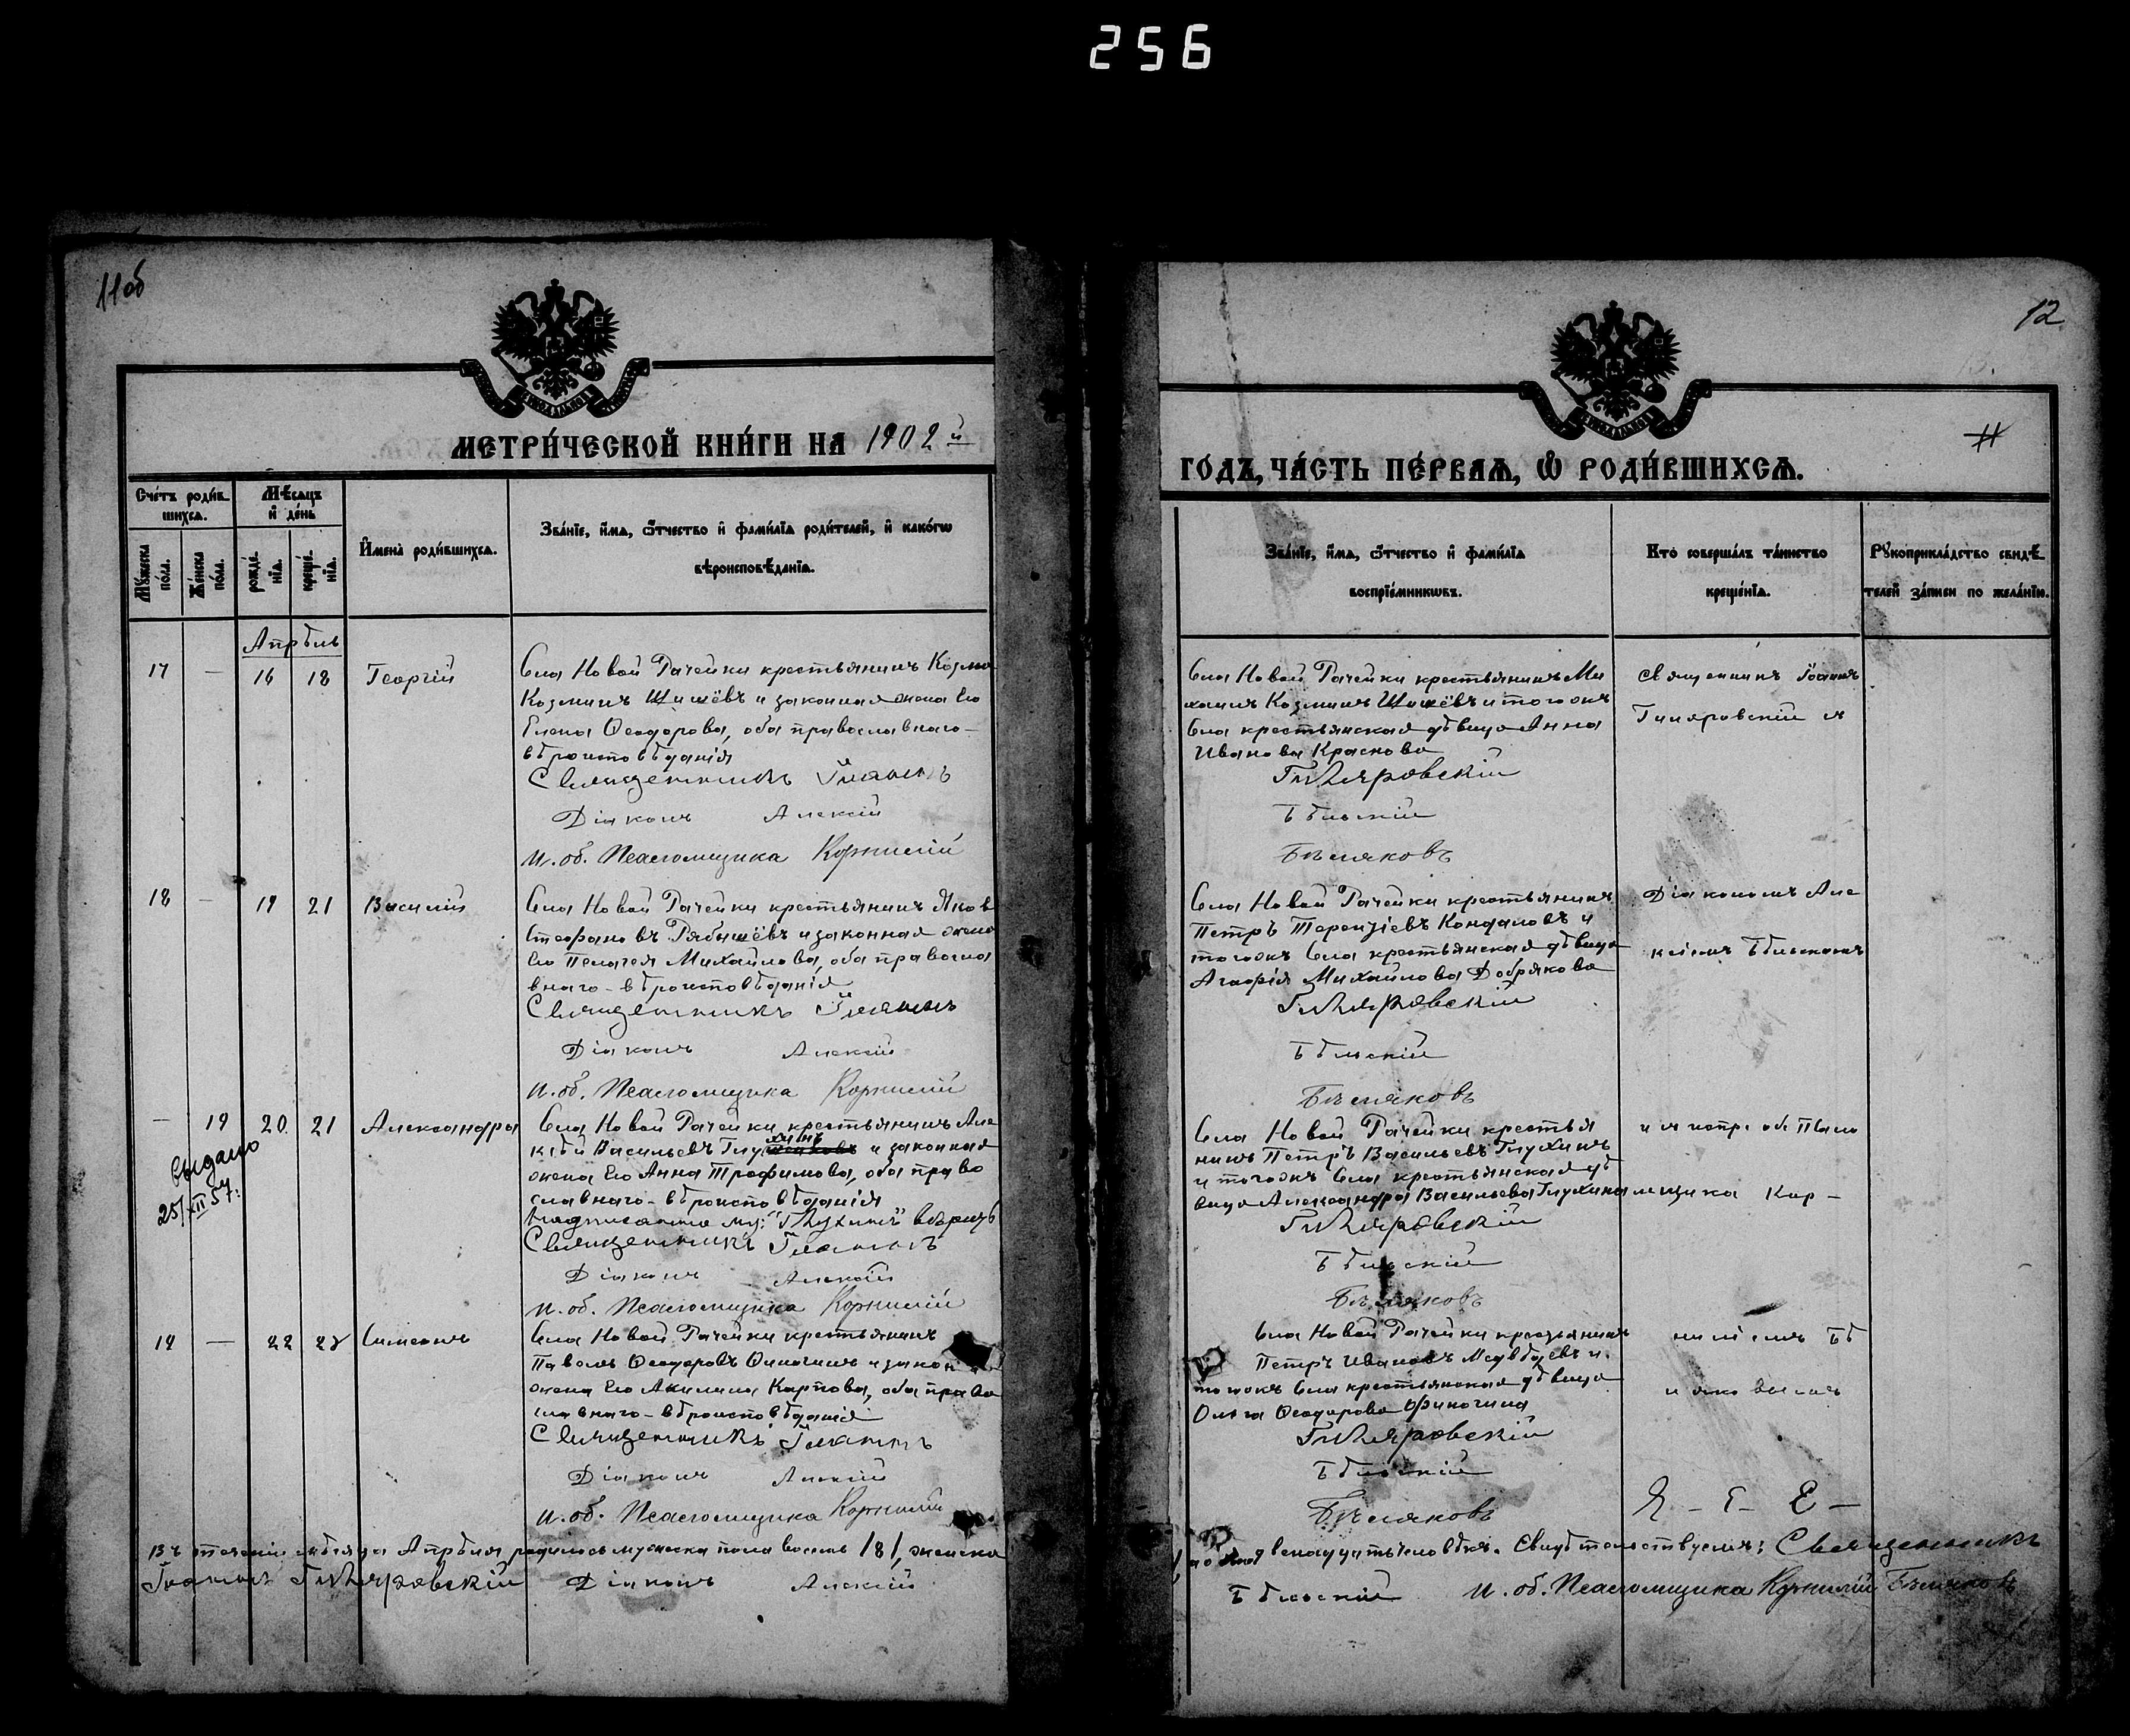 256
11 об
МЕТРИ́ЧЕСКОЙ КНИ́ГИ НА 1902 й
Сче́тъ роди́в-
шихсѧ.
Мѣ́сѧцъ
и҆ де́нь
Мꙋ́жеска
по́ла.
Же́нска
по́ла.
рожде́-
нїѧ.
креще́-
нїѧ.
И҆мена̀ роди́вшихсѧ.
Зва́нїе, и҆́мѧ, ѻ҆́тчество и҆ фамѝлїѧ роди́телей, и҆ како́гѡ
вѣроисповѣ́данїѧ.
Апрѣль
17 — 16 18 Георгій
Села Новой Рачейки крестьянинъ Козма
Козминъ Шишёвъ и законная жена его
Елена Ѳеодорова, оба православнаго-
вѣроисповѣданія
Священникъ Іоаннъ
Діаконъ Алексій
И. об. Псаломщика Корнилій
18 — 19 21 Василій
Села Новой Рачейки крестьянинъ Яковъ
Стефановъ Рябышёвъ и законная жена
его Пелагея Михайлова, оба правосла
внаго-вѣроисповѣданія
Священникъ Іоаннъ
Діаконъ Алексій
И. об. Псаломщика Корнилій
— 19 20 21 Александра
Села Новой Рачейки крестьянинъ Але
ксѣй Васильевъ Глухинъ и законная
жена его Анна Трофимова, оба право
славнаго-вѣроисповѣданія
Надписанно му: "Глухинъ" вѣрить
Священникъ Іоаннъ
Діаконъ Алексій
И. об. Псаломщика Корнилій
Выдано
25/XII 57.
19 — 22 Симеонъ
Села Новой Рачейки крестьянинъ
Павелъ Ѳеодоровъ Финогинъ и закон
жена его Акилина Карпова, оба право
славнаго-вѣроисповѣданія
Священникъ Іоаннъ
Діаконъ Алексій
И. об. Псаломщика Корнилій
Въ теченіи мѣсяца Апрѣля родилось мужеска пола восемь /8/, женска
Іоаннъ Гиляровскій Діаконъ Алексій
12
11
ГО́ДЪ, ЧА́СТЬ ПЕ́РВАѦ, Ѡ҆ РОДИ́ВШИХСѦ.
Зва́нїе, и҆́мѧ, ѻ҆́тчество и҆ фамѝлїѧ
воспрїе́мникѡвъ.
Кто̀ соверша́лъ та́инство
креще́нїѧ.
Рꙋкоприкла́дство свидѣ́-
телей за́писи по жела́нїю.
Села Новой Рачейки крестьянинъ Ми
хаилъ Козминъ Шишёвъ и того же
Села крестьянская дѣвица Анна
Иванова Краснова
Гиляровскій
Бѣльскій
Бѣляковъ
Священникъ Іоаннъ
Гиляровскій съ
Села Новой Рачейки крестьянинъ
Петръ Терентіевъ Кондаловъ и
того же Села крестьянская дѣвица
Агафія Михайлова Добрякова
Гиляровскій
Бѣльскій
Бѣляковъ
Діакономъ Але
ксіемъ Бѣльскимъ
Села Новой Рачейки крестья
нинъ Петръ Васильевъ Глухинъ
и того же Села крестьянская дѣ
вица Александра Васильева Глухина
Гиляровскій
Бѣльскій
Бѣляковъ
и испр. об. Псало
мщика Кор-
Села Новой Рачейки крестьянинъ
Петръ Ивановъ Медвѣдевъ и
того же Села крестьянская дѣвица
Ольга Ѳеодорова Финогина
Гиляровскій
Бѣльскій
Бѣляковъ
ниліемъ Бѣ
ляковымъ
двенадцать человѣкъ. Свидѣтельствуемъ: Священникъ
Бѣльскій И. об. Псаломщика Корнилій Бѣляковъ